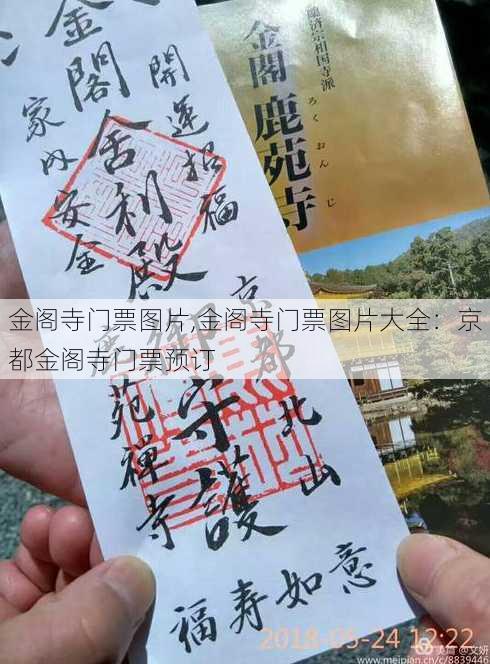 金閣舎利殿
開運招福
家内安全
御守護
京都
北山
鹿苑禅寺
福寿如意
臨済宗相国寺派
金閣 鹿苑寺
ろくおんじ
金阁寺门票图片,金阁寺门票图片大全：京
都金阁寺门票预订
2018-05-24 12:22
美篇 @文妍
www.meipian.cn/c/8839446